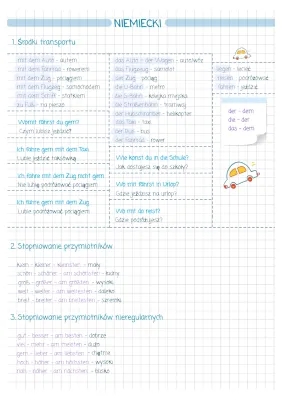 NIEMIECKI
1. Środki transportu
mit dem Auto - autem
mit dem Fahrrad - rowerem
mit dem Zug - pociągiem
mit dem Flugzeug - samolotem
mit dem Schiff - statkiem
zu Fuß - na pieszo
das Auto / der Wagen - auto/wóz
das Flugzeug - samolot
der Zug - pociąg
die U-Bahn - metro
die S-Bahn - kolejka miejska
die Straßenbahn - tramwaj
der Hubschrauber - helikopter
das Taxi - taxi
der Bus - bus
das Fahrrad - rower
fliegen - lecieć
reisen - podróżować
fahren - jeździć
der - dem
die - der
das - dem
Womit fährst du gern?
Czym lubisz jeździć?
Ich fahre gern mit dem Taxi.
Lubię jeździć taksówką.
Ich fahre mit dem Zug nicht gern.
Nie lubię podróżować pociągiem.
Ich fahre gern mit dem Zug.
Lubię podróżować pociągiem.
Wie kommst du in die Schule?
Jak dostajesz się do szkoły?
Wohin fährst du in Urlaub?
Gdzie jedziesz na urlop?
Wo mit du reist?
2. Stopniowanie przymiotników
klein - kleiner - am kleinsten - mały
schön - schöner - am schönsten - ładny
groß - größer - am größten - wysoki
weit - weiter - am weitesten - daleki
breit - breiter - am breitesten - szeroki
3. Stopniowanie przymiotników nieregularnych
gut - besser - am besten - dobrze
viel - mehr - am meisten - dużo
gern - lieber - am liebsten - chętnie
hoch - höher - am höchsten - wysoki
nah - näher - am nächsten - blisko